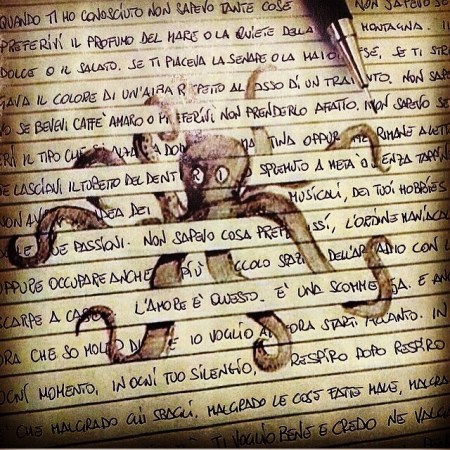 QUANDO TI HO CONOSCIUTO NON SAPEVO TANTE COSE NON SAPEVO SE
PREFERIVI IL PROFUMO DEL MARE O LA QUIETE DELLA MONTAGNA. I
DOLCE O IL SALATO. SE TI PIACEVA LA SENAPE O LA MAIO ESE, SE TI
IL COLORE DI UN'ALBA RISPETTO AL ROSSO DI UN NON
SE BEVEVI CAFFE' AMARO O PREFERIVI NON PRENDERLO AFFATTO. NON SAPEVO SE
IL TIPO CHE TINA OPPURE RIMANE A
LASCIAVI IL TUBETTO DEL DENT SPREMUTO A META' O SENZA
NON DEI MUSICALI, DEI TUOI HOBBIES
LE TUE PASSIONI. NON SAPEVO COSA L'ORDINE MANIACA
OPPURE OCCUPARE ANCHE PIÙ CCOLO DELL'ARMADIO CON L
SCARPE A CAS L'AMORE E' QUESTO. E' UNA SCOMME A. E
ORA CHE SO E IO VOGLIO A ORA STARTI ACCANTO. IN
OGNI MOMENTO, IN OGNI TUO SILENZIO, RESPIRO DOPO RESPIRO
E' CHE MALGRADO GLI SBAGLI, MALGRADO LE COSE FATTE MALE, MALGRA
TI VOGLIO BENE E CREDO NE VALG